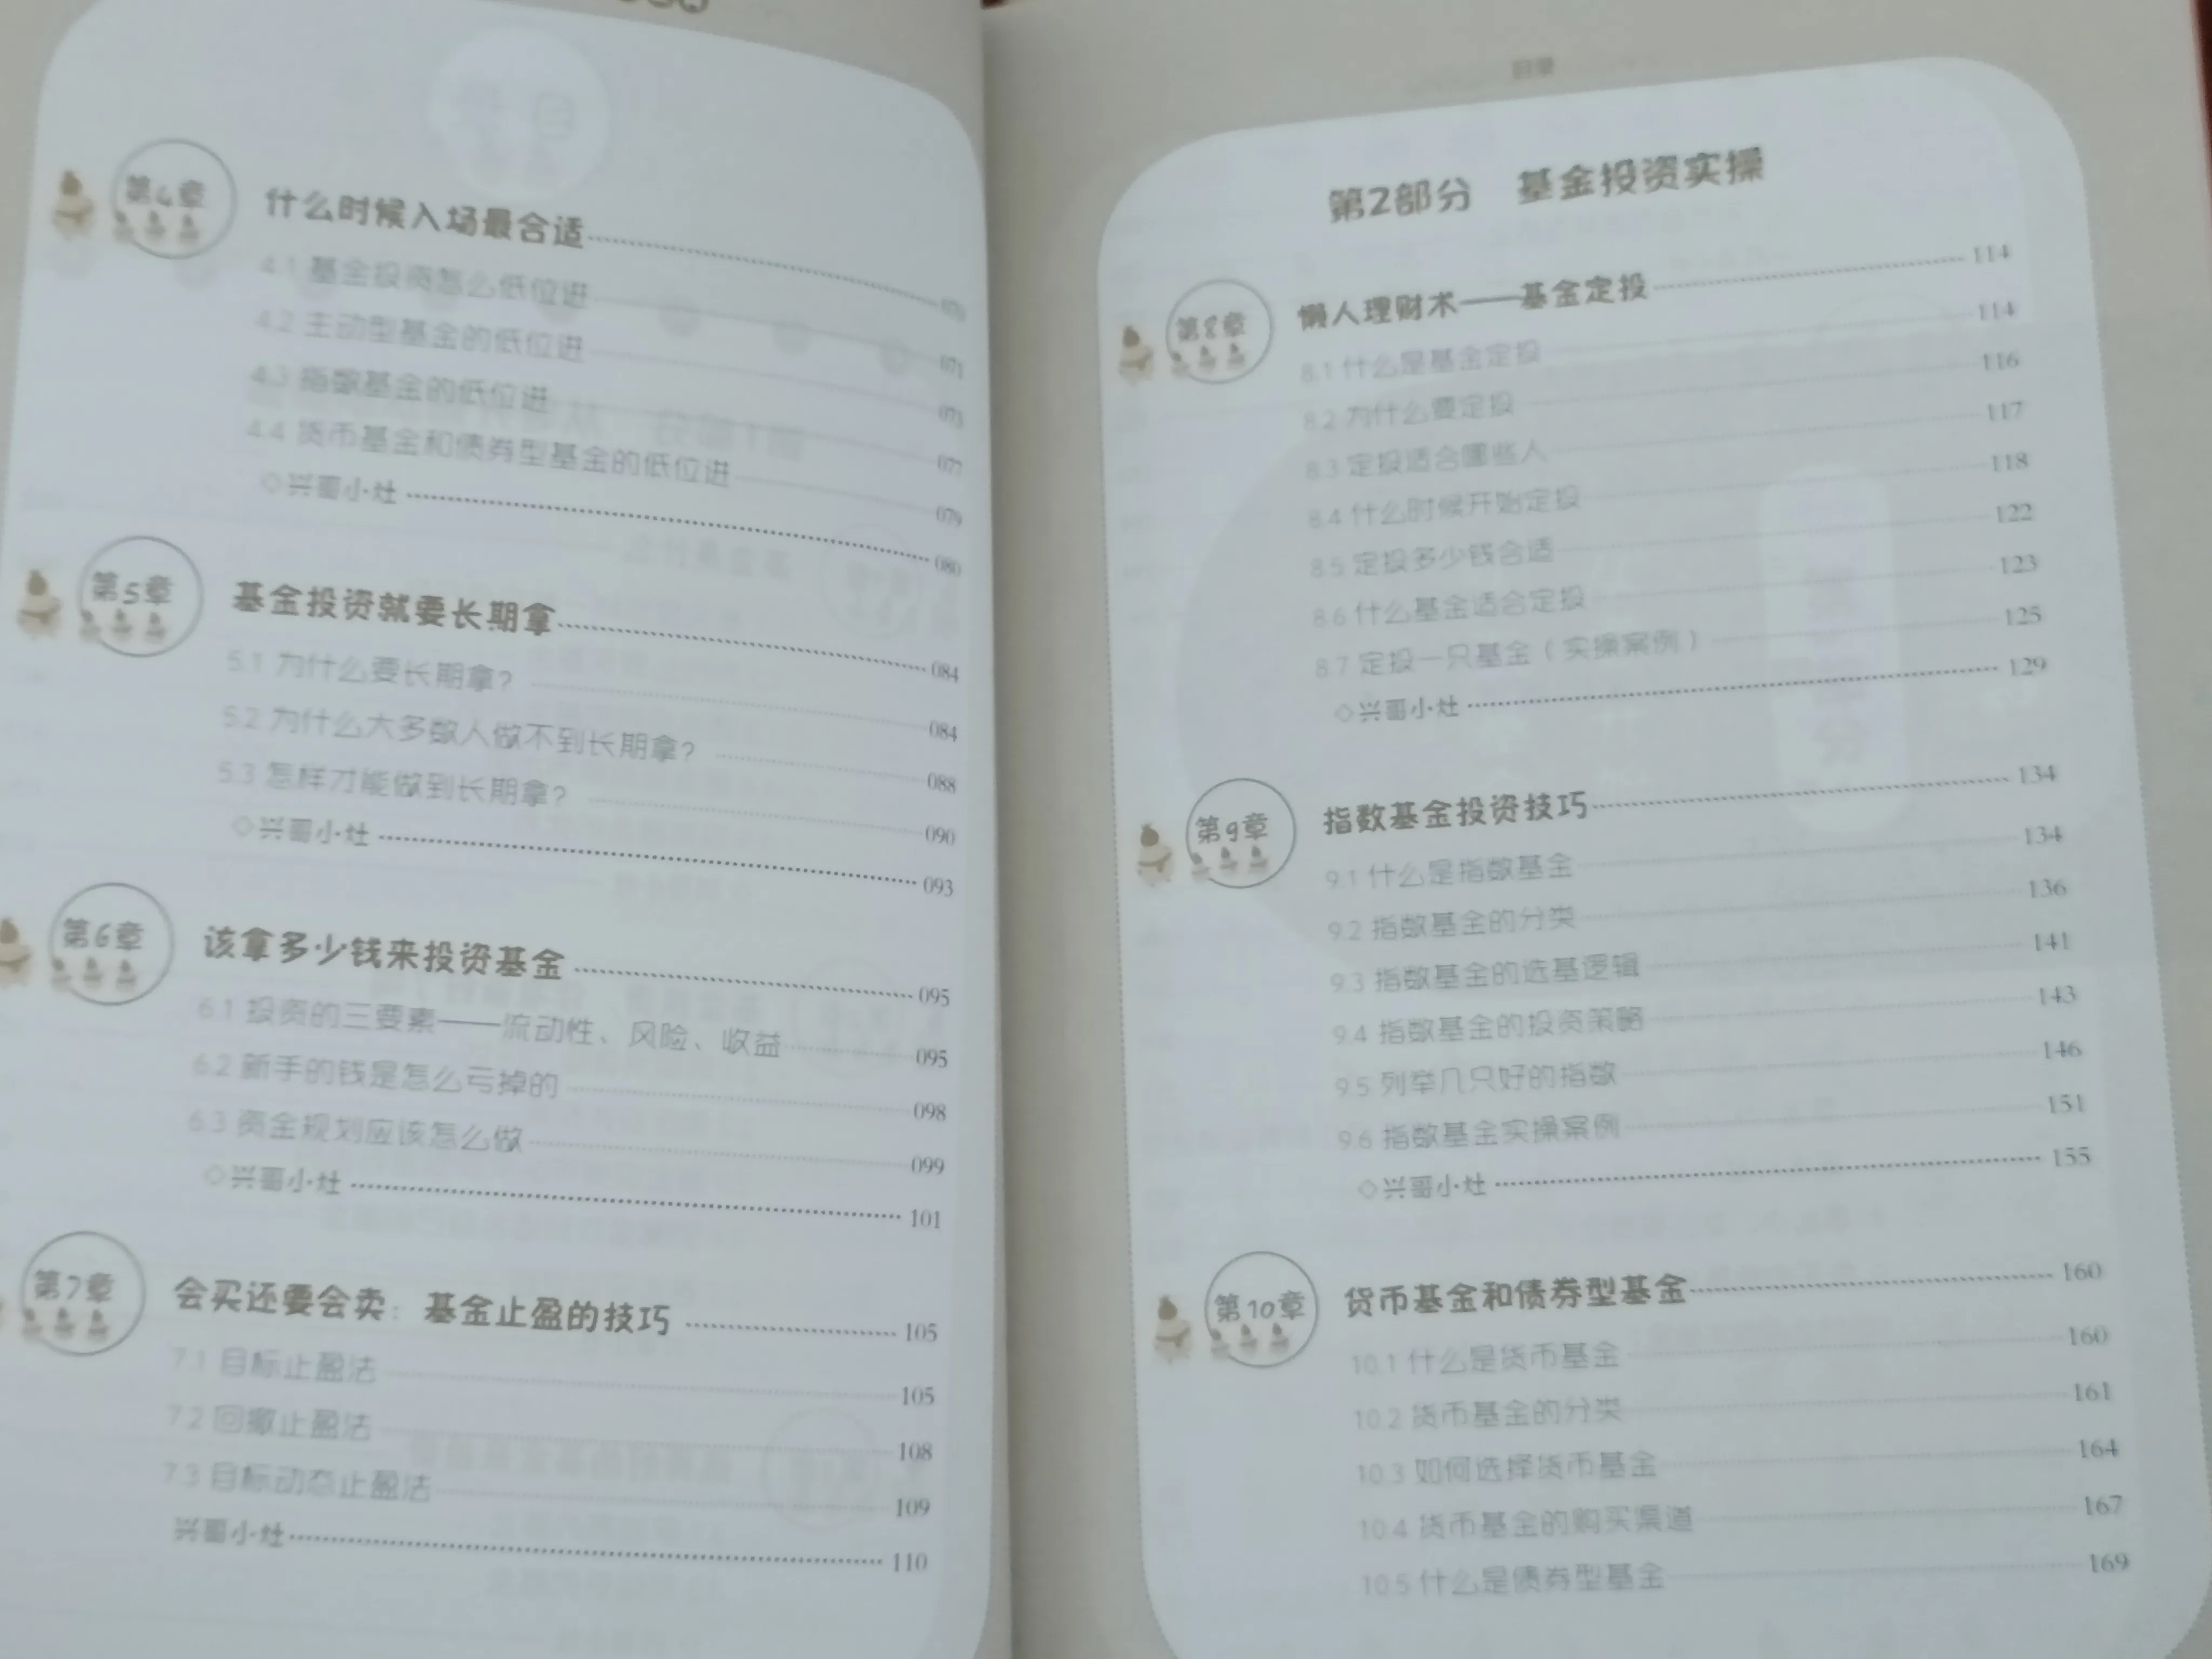 第4章 什么时候入场最合适 070
4.1 基金投资怎么低位进 071
4.2 主动型基金的低位进 073
4.3 指数基金的低位进 077
4.4 货币基金和债券型基金的低位进 079
◇兴哥小灶 080
第5章 基金投资就要长期拿 084
5.1 为什么要长期拿？ 084
5.2 为什么大多数人做不到长期拿？ 088
5.3 怎样才能做到长期拿？ 090
◇兴哥小灶 093
第6章 该拿多少钱来投资基金 095
6.1 投资的三要素——流动性、风险、收益 095
6.2 新手的钱是怎么亏掉的 098
6.3 资金规划应该怎么做 099
◇兴哥小灶 101
第7章 会买还要会卖：基金止盈的技巧 105
7.1 目标止盈法 105
7.2 回撤止盈法 108
7.3 目标动态止盈法 109
兴哥小灶 110
目录
第2部分 基金投资实操
第8章 懒人理财术——基金定投 114
8.1 什么是基金定投 114
8.2 为什么要定投 116
8.3 定投适合哪些人 117
8.4 什么时候开始定投 118
8.5 定投多少钱合适 122
8.6 什么基金适合定投 123
8.7 定投一只基金（实操案例） 125
◇兴哥小灶 129
第9章 指数基金投资技巧 134
9.1 什么是指数基金 134
9.2 指数基金的分类 136
9.3 指数基金的选基逻辑 141
9.4 指数基金的投资策略 143
9.5 列举几只好的指数 146
9.6 指数基金实操案例 151
◇兴哥小灶 155
第10章 货币基金和债券型基金 160
10.1 什么是货币基金 160
10.2 货币基金的分类 161
10.3 如何选择货币基金 164
10.4 货币基金的购买渠道 167
10.5 什么是债券型基金 169